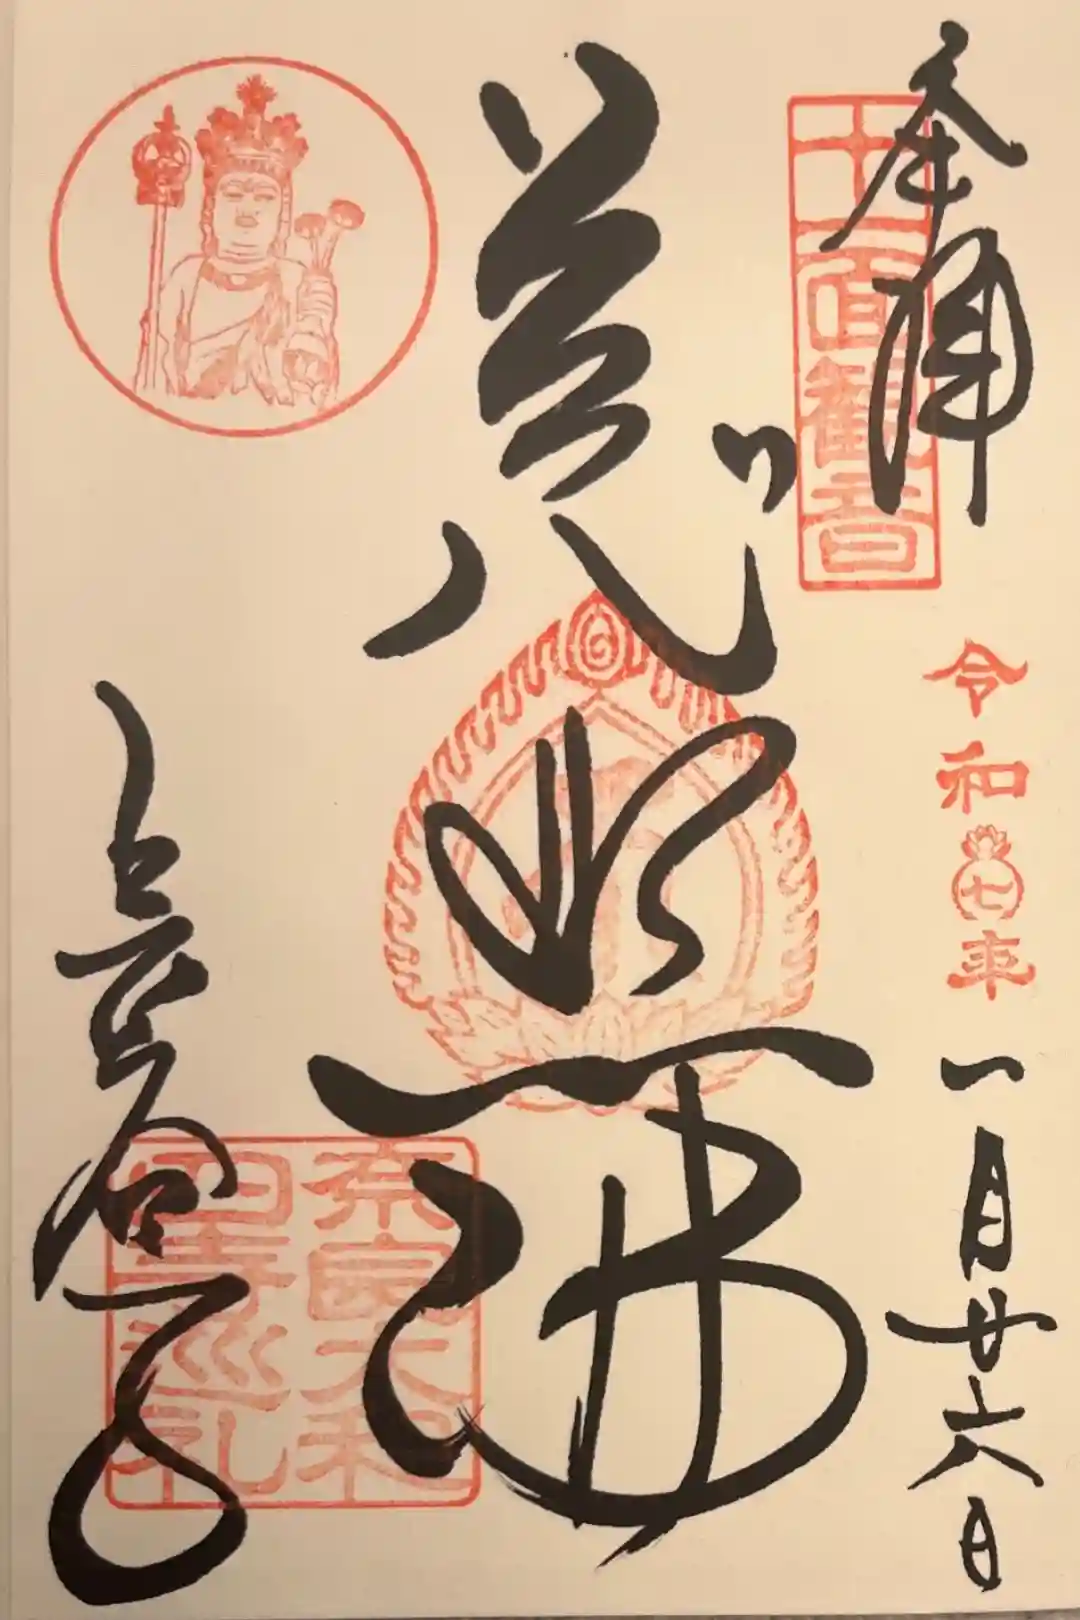 奉拝
十一面観音
令和七年一月廿六日
長谷寺
奈良大和
四寺巡礼